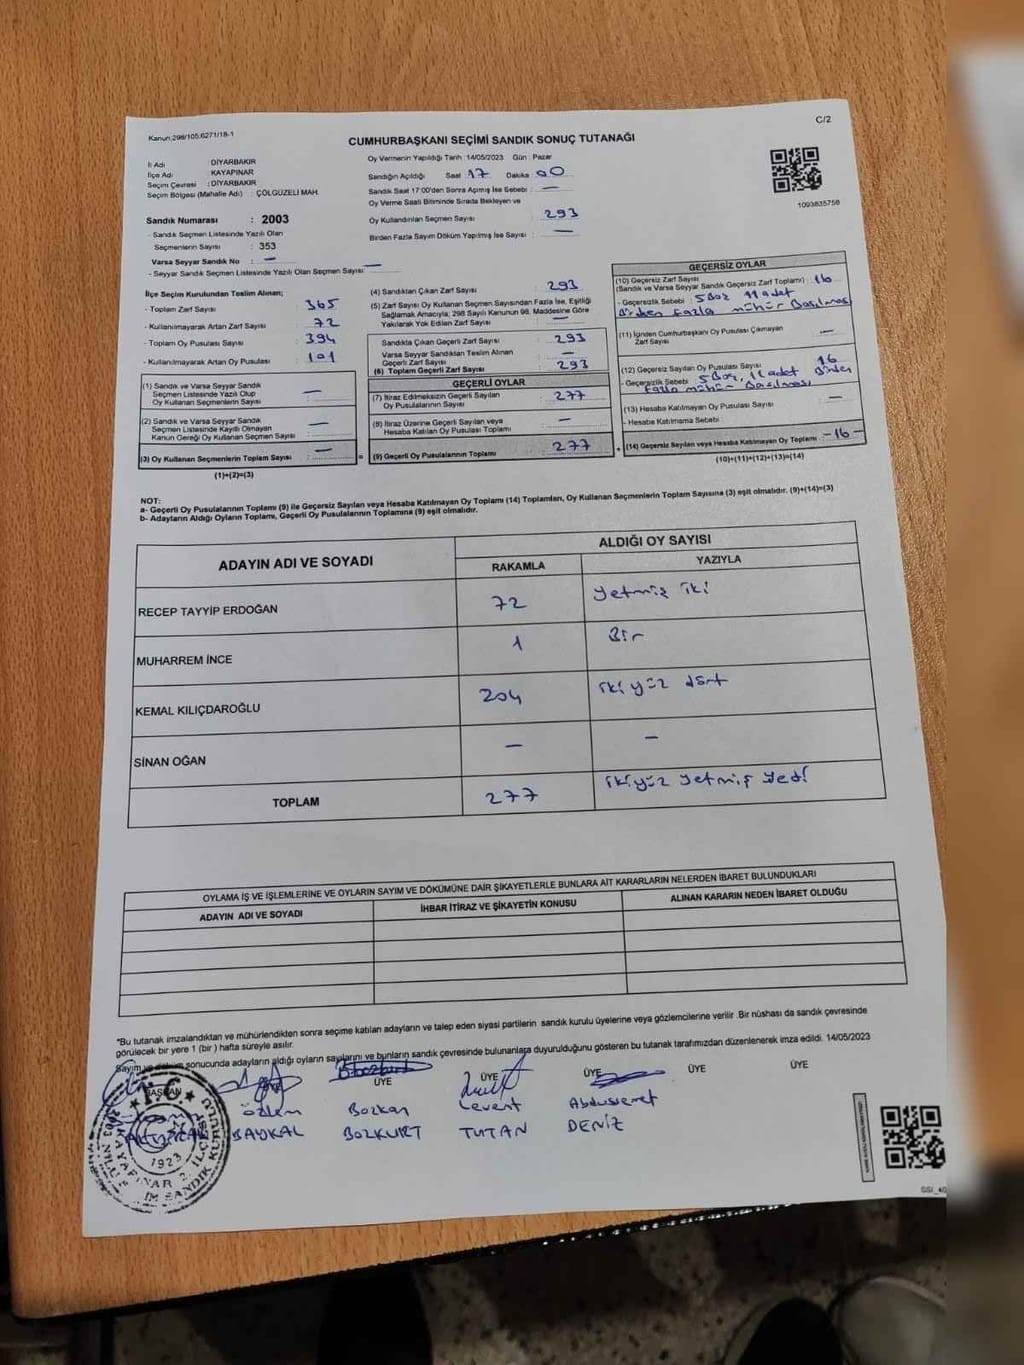 Kanun:298/105,6271/18-1
C/2
CUMHURBAŞKANI SEÇİMİ SANDIK SONUÇ TUTANAĞI
İl Adı : DİYARBAKIR
İlçe Adı : KAYAPINAR
Seçim Çevresi : DİYARBAKIR
Seçim Bölgesi (Mahalle Adı) : ÇÖLGÜZELİ MAH.
Sandık Numarası : 2003
- Sandık Seçmen Listesinde Yazılı Olan
Seçmenlerin Sayısı : 353
Varsa Seyyar Sandık No : —
- Seyyar Sandık Seçmen Listesinde Yazılı Olan Seçmen Sayısı : —
Oy Vermenin Yapıldığı Tarih : 14/05/2023 Gün : Pazar
Sandığın Açıldığı Saat 17 Dakika 00
Sandık Saat 17:00'den Sonra Açımış İse Sebebi : —
Oy Verme Saati Bitiminde Sırada Bekleyen ve
Oy Kullandırılan Seçmen Sayısı : 293
Birden Fazla Sayım Döküm Yapılmış İse Sayısı : —
1093835758
İlçe Seçim Kurulundan Teslim Alınan;
- Toplam Zarf Sayısı : 365
- Kullanılmayarak Artan Zarf Sayısı : 72
- Toplam Oy Pusulası Sayısı : 394
- Kullanılmayarak Artan Oy Pusulası : 101
(1) Sandık ve Varsa Seyyar Sandık
Seçmen Listesinde Yazılı Olup
Oy Kullanan Seçmenlerin Sayısı : —
(2) Sandık ve Varsa Seyyar Sandık
Seçmen Listesinde Kayıtlı Olmayan
Kanun Gereği Oy Kullanan Seçmen Sayısı : —
(3) Oy Kullanan Seçmenlerin Toplam Sayısı : —
(1)+(2)=(3)
(4) Sandıktan Çıkan Zarf Sayısı : 293
(5) Zarf Sayısı Oy Kullanan Seçmen Sayısından Fazla İse, Eşitliği
Sağlamak Amacıyla; 298 Sayılı Kanunun 98. Maddesine Göre
Yakılarak Yok Edilen Zarf Sayısı : —
Sandıkta Çıkan Geçerli Zarf Sayısı : 293
Varsa Seyyar Sandıktan Teslim Alınan
Geçerli Zarf Sayısı : —
(6) Toplam Geçerli Zarf Sayısı : 293
GEÇERLİ OYLAR
(7) İtiraz Edilmeksizin Geçerli Sayılan
Oy Pusulalarının Sayısı : 277
(8) İtiraz Üzerine Geçerli Sayılan veya
Hesaba Katılan Oy Pusulası Toplamı : —
(9) Geçerli Oy Pusulalarının Toplamı : 277
GEÇERSİZ OYLAR
(10) Geçersiz Zarf Sayısı
(Sandık ve Varsa Seyyar Sandık Geçersiz Zarf Toplamı) : 16
- Geçersizlik Sebebi : 5 Boş 11 adet
Birden fazla mühür Basılması
(11) İçinden Cumhurbaşkanı Oy Pusulası Çıkmayan
Zarf Sayısı : —
(12) Geçersiz Sayılan Oy Pusulası Sayısı : 16
- Geçersizlik Sebebi 5 Boş, 11 adet Birden
fazla mühür Basılması
(13) Hesaba Katılmayan Oy Pusulası Sayısı : —
- Hesaba Katılmama Sebebi :
(14) Geçersiz Sayılan veya Hesaba Katılmayan Oy Toplamı : -16-
(10)+(11)+(12)+(13)=(14)
NOT:
a- Geçerli Oy Pusulalarının Toplamı (9) ile Geçersiz Sayılan veya Hesaba Katılmayan Oy Toplamı (14) Toplamları, Oy Kullanan Seçmenlerin Toplam Sayısına (3) eşit olmalıdır. (9)+(14)=(3)
b- Adayların Aldığı Oyların Toplamı, Geçerli Oy Pusulalarının Toplamına (9) eşit olmalıdır.
ADAYIN ADI VE SOYADI
ALDIĞI OY SAYISI
RAKAMLA YAZIYLA
RECEP TAYYİP ERDOĞAN 72 yetmiş iki
MUHARREM İNCE 1 Bir
KEMAL KILIÇDAROĞLU 204 iki yüz dört
SİNAN OĞAN — —
TOPLAM 277 ikiyüz yetmiş yedi
OYLAMA İŞ VE İŞLEMLERİNE VE OYLARIN SAYIM VE DÖKÜMÜNE DAİR ŞİKAYETLERLE BUNLARA AİT KARARLARIN NELERDEN İBARET BULUNDUKLARI
ADAYIN ADI VE SOYADI İHBAR İTİRAZ VE ŞİKAYETİN KONUSU ALINAN KARARIN NEDEN İBARET OLDUĞU
*Bu tutanak imzalandıktan ve mühürlendikten sonra seçime katılan adayların ve talep eden siyasi partilerin sandık kurulu üyelerine veya gözlemcilerine verilir .Bir nüshası da sandık çevresinde
görülecek bir yere 1 (bir ) hafta süreyle asılır.
Sayım ve döküm sonucunda adayların aldığı oyların sayılarını ve bunların sandık çevresinde bulunanlara duyurulduğunu gösteren bu tutanak tarafımızdan düzenlenerek imza edildi. 14/05/2023
BAŞKAN ÜYE ÜYE ÜYE ÜYE ÜYE
özlem Bozkan Levent Abdussamet
BAYKAL BOZKURT TUTAN DENİZ
T.C.
1923